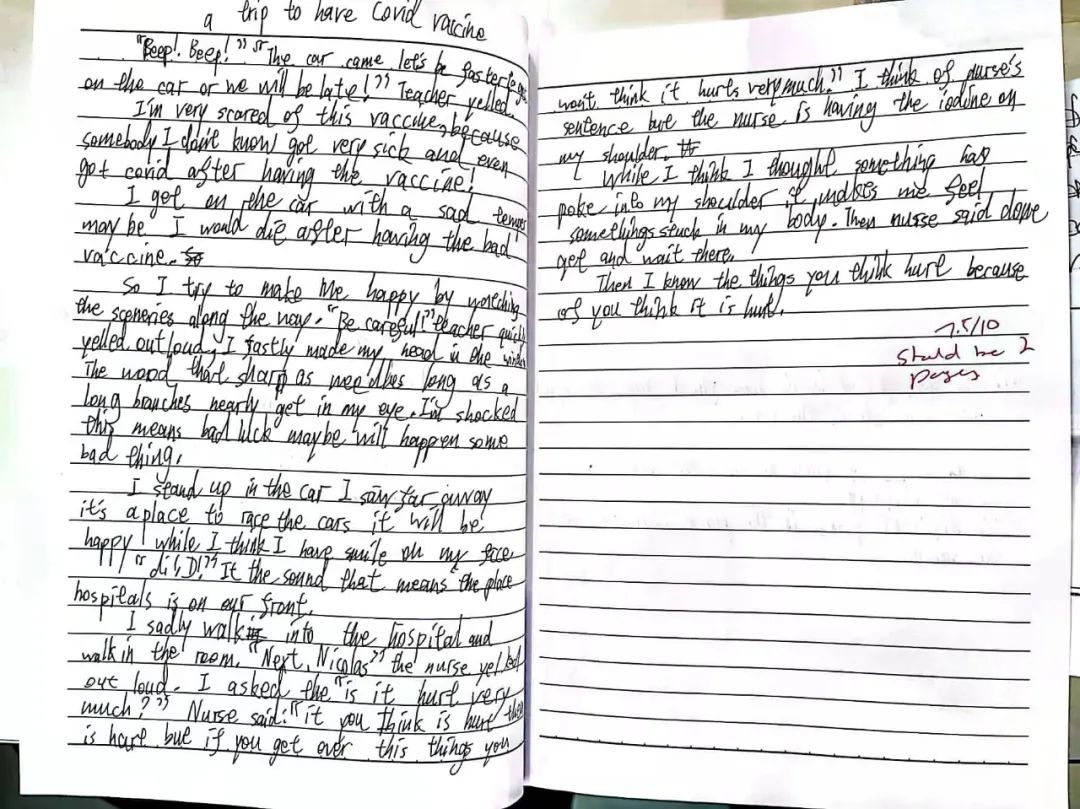 a trip to have Covid vaccine
"Beep! Beep!" "The car came let's be faster
on the car or we will be late!" Teacher yelled.
I'm very scared of this vaccine, because
somebody I don't know got very sick and even
got covid after having the vaccine!
I get on the car with a sad
may be I would die after having the bad
vaccine.
So I try to make me happy by watching
the sceneries along the way. "Be careful!" teacher quick
yelled out loud, I fastly made my head in the
The wood that sharp as needles long as a
long branches nearly get in my eye. I'm shocked
this means bad luck maybe will happen some
bad thing.
I stand up in the car I saw far away
it's a place to race the cars it will be
happy while I think I have smile on my face
"di!, D!" It the sound that means the place
hospitals is on our front.
I sadly walk into the hospital and
walk in the room. "Next, Nicolas" the nurse yelled
out loud. I asked the "is it hurt very
much?" Nurse said: "it you think is hurt
is hart but if you get over this things you
won't think it hurts very much." I think of nurse's
sentence but the nurse is having the iodine on
my shoulder.
While I think I thought something has
poke into my shoulder it makes me feel
somethings stuck in my body. Then nusse said done
get and wait there.
Then I know the things you think hurt because
of you think it is hurt.
7.5/10
Should be 2
pages